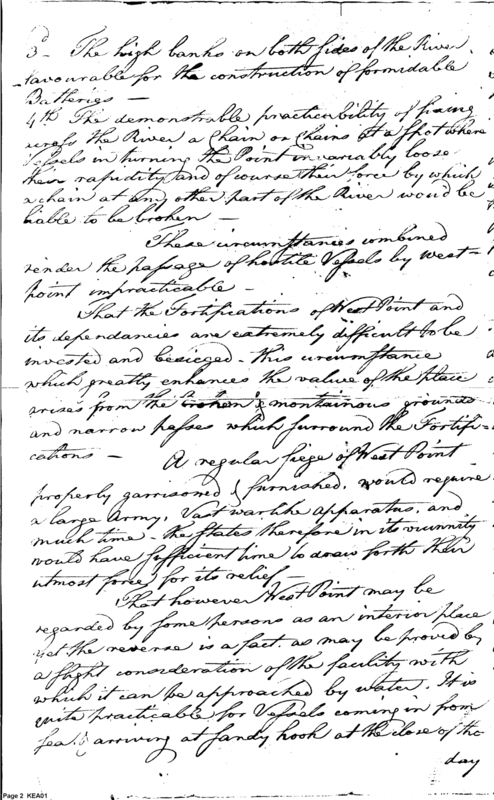 3d- The high banks on both sides of the River,
favourable for the construction of formidable
Batteries —
4th The demonstrable practicability of fixing
across the River a Chain or Chains at a spot where
Vessels in turning the Point invariably loose
their rapidity and of course their force by which
a chain at any other part of the River would be
liable to be broken —
These circumstances combined
render the passage of hostile Vessels by West-
point impracticable —
That the Fortifications of West Point and
its dependancies are extremely difficult to be
invested and besieged - this circumstance
which greatly enhances the value of the place
arises from the broken & montainous grounds
and narrow passes which surround the Fortifi-
cations —
A regular Siege of West Point
properly garrisoned & furnished, would require
a large Army, Vast warlike apparatus, and
much time - the States therefore in its vicinnity
would have sufficient time to draw forth their
utmost force, for its relief
That however West Point may be
regarded by some persons as an interior place
yet the reverse is a fact. as may be proved by
a slight consideration of the facility with
which it can be approached by water. It is
quite practicable for Vessels coming in from
Sea & arriving at Sandy hook at the close of the
day
Page 2 KEA01